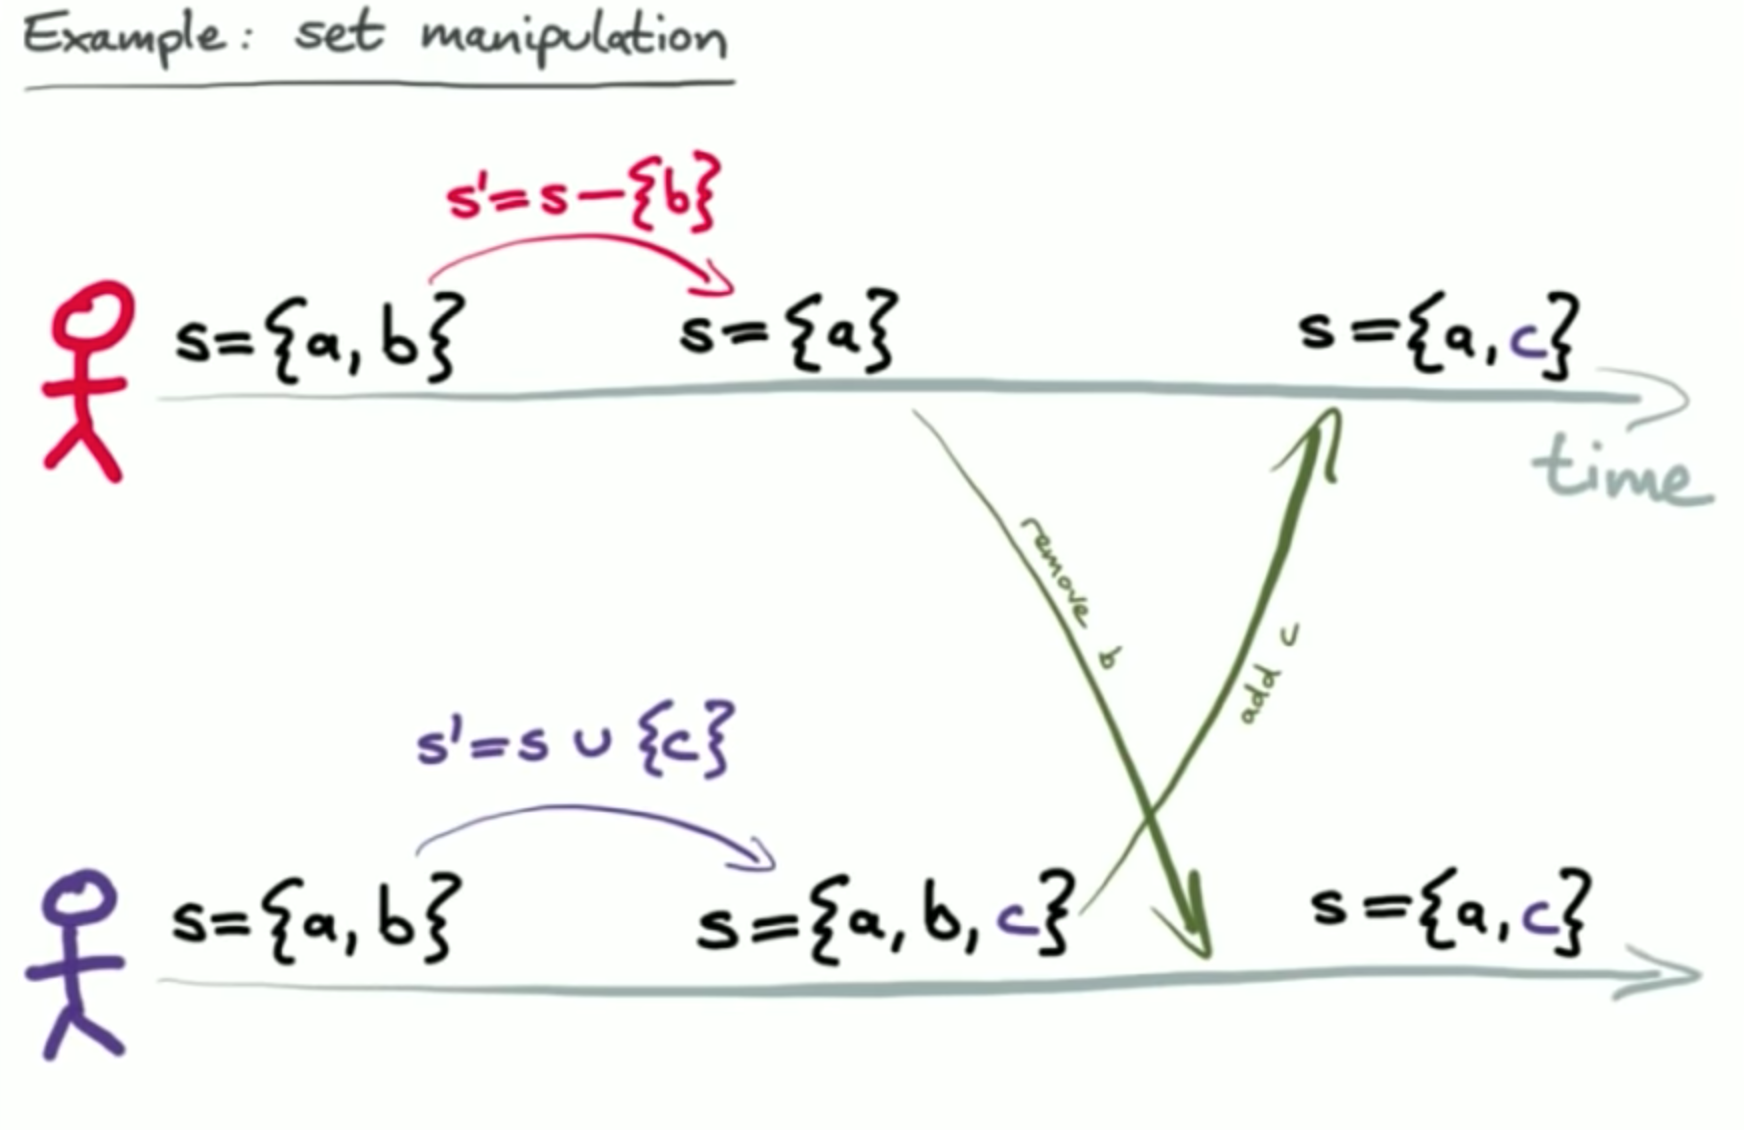 Example: set manipulation
s'=s-{b}
s={a, b}
s={a}
s={a, c}
time
remove b
add c
s'=s ∪ {c}
s={a, b}
s={a, b, c}
s={a, c}